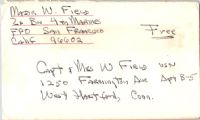 Mark W. Field
2d Bn 4th Marines
FPO San Francisco
Calif 96602
Free
Capt & Mrs W Field USN
1250 Farmington Ave Apt B-5
West Hartford, Conn.